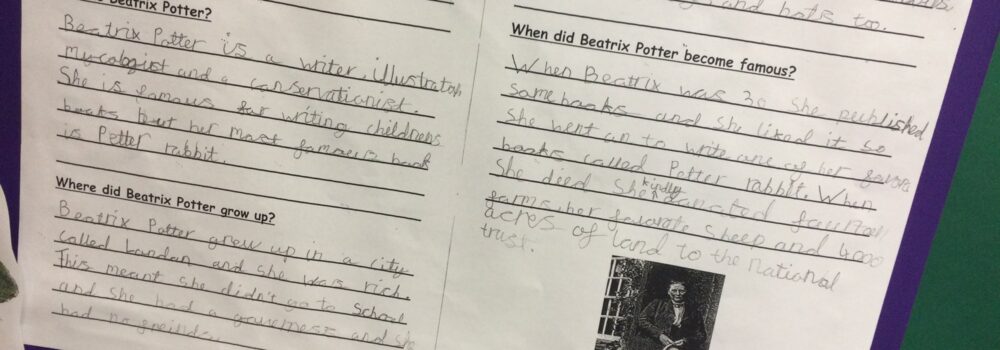 Beatrix Potter?
Beatrix Potter is a writer, illustrator
mycologist and a conservationist.
She is famous for writing childrens
books but her most famous book
is Petter rabbit.
Where did Beatrix Potter grow up?
Beatrix Potter grew up in a city
called London and she was rich.
This meant she didn't go to school
and she had a governess and she
had no
and hats too.
When did Beatrix Potter become famous?
When Beatrix was 30 she published
some books and she liked it so
She went on to write one of her
books called Potter rabbit. When
She died She kindly donated
farms her sheep and 4000
acres of land to the national
trust.